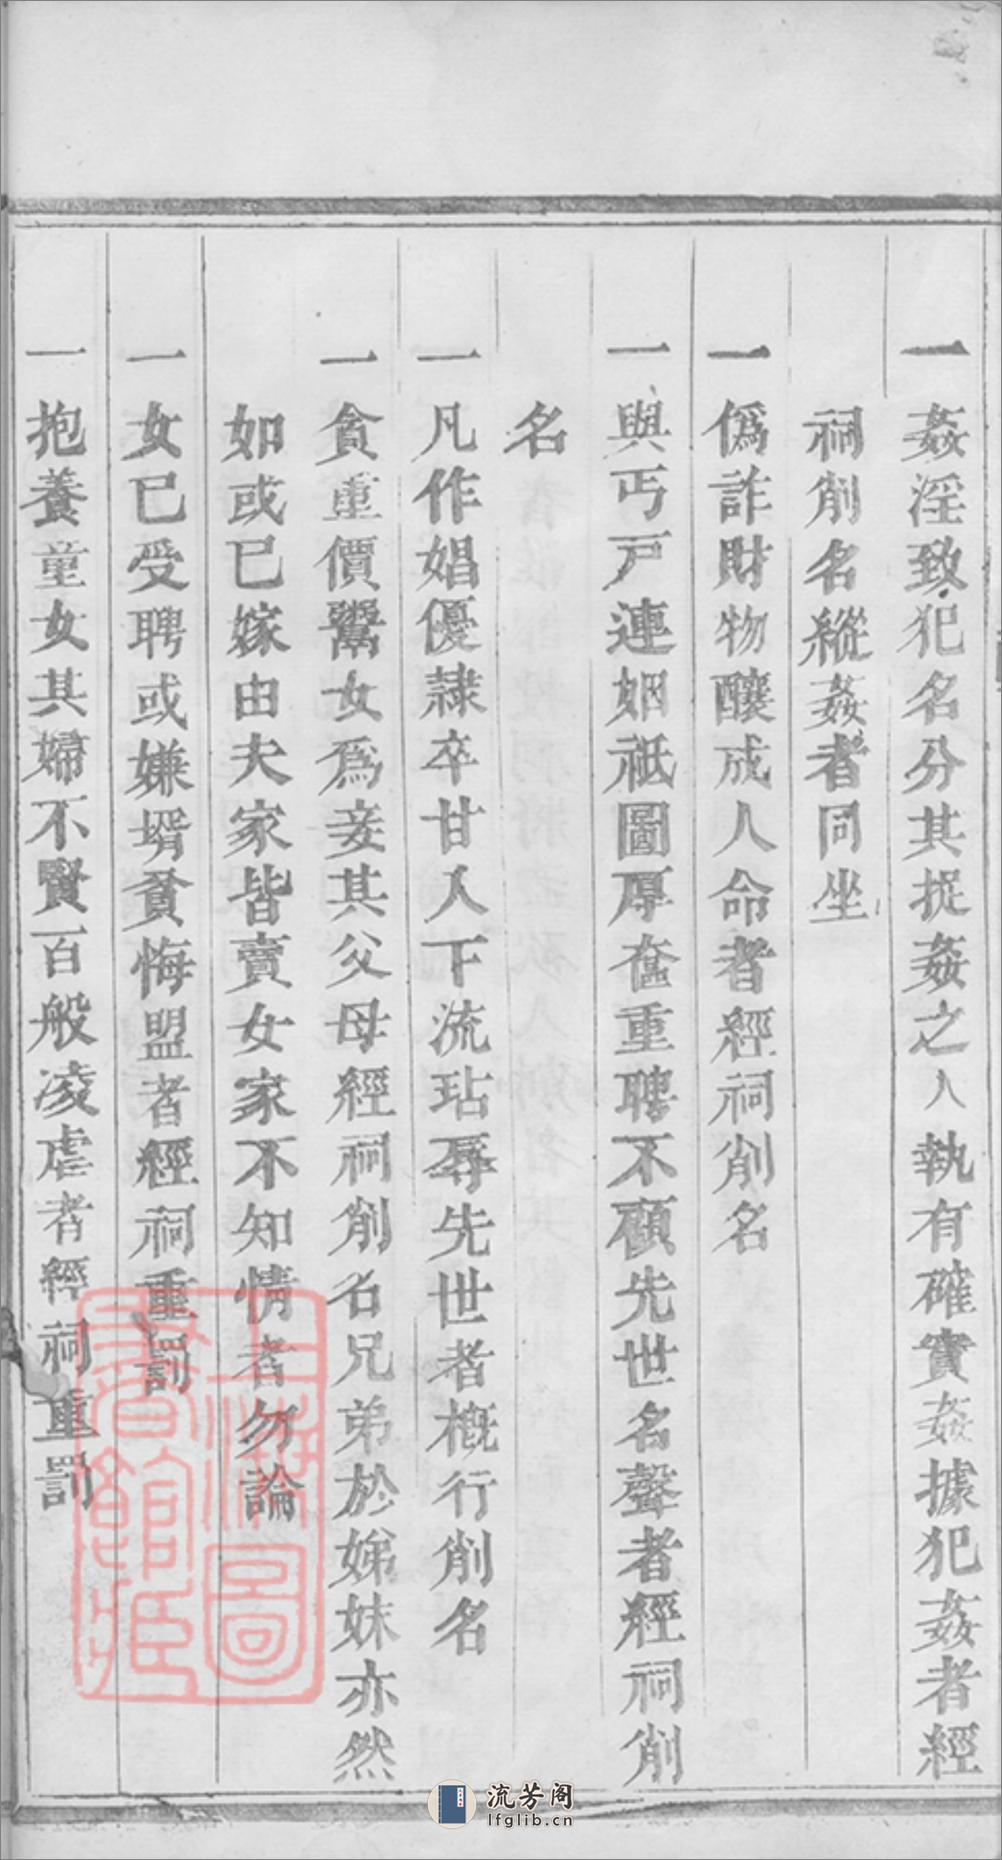 一姦淫致犯名分其捉姦之人執有確實姦據犯姦者經
祠削名縱姦者同坐
一僞詐財物釀成人命者經祠削名
一與丐戸連姻祇圖厚奩重聘不顧先世名聲者經祠削
名
一凡作娼優隷卒甘人下流玷辱先世者槪行削名
一貪重價鬻女爲妾其父母經祠削名兄弟於娣妹亦然
如或已嫁由夫家皆賣女家不知情者勿論
一女已受聘或嫌壻貧悔盟者經祠重罰
一抱養童女其婦不賢百般凌虐者經祠重罰
上海圖書館藏
流芳阁
lfglib.cn